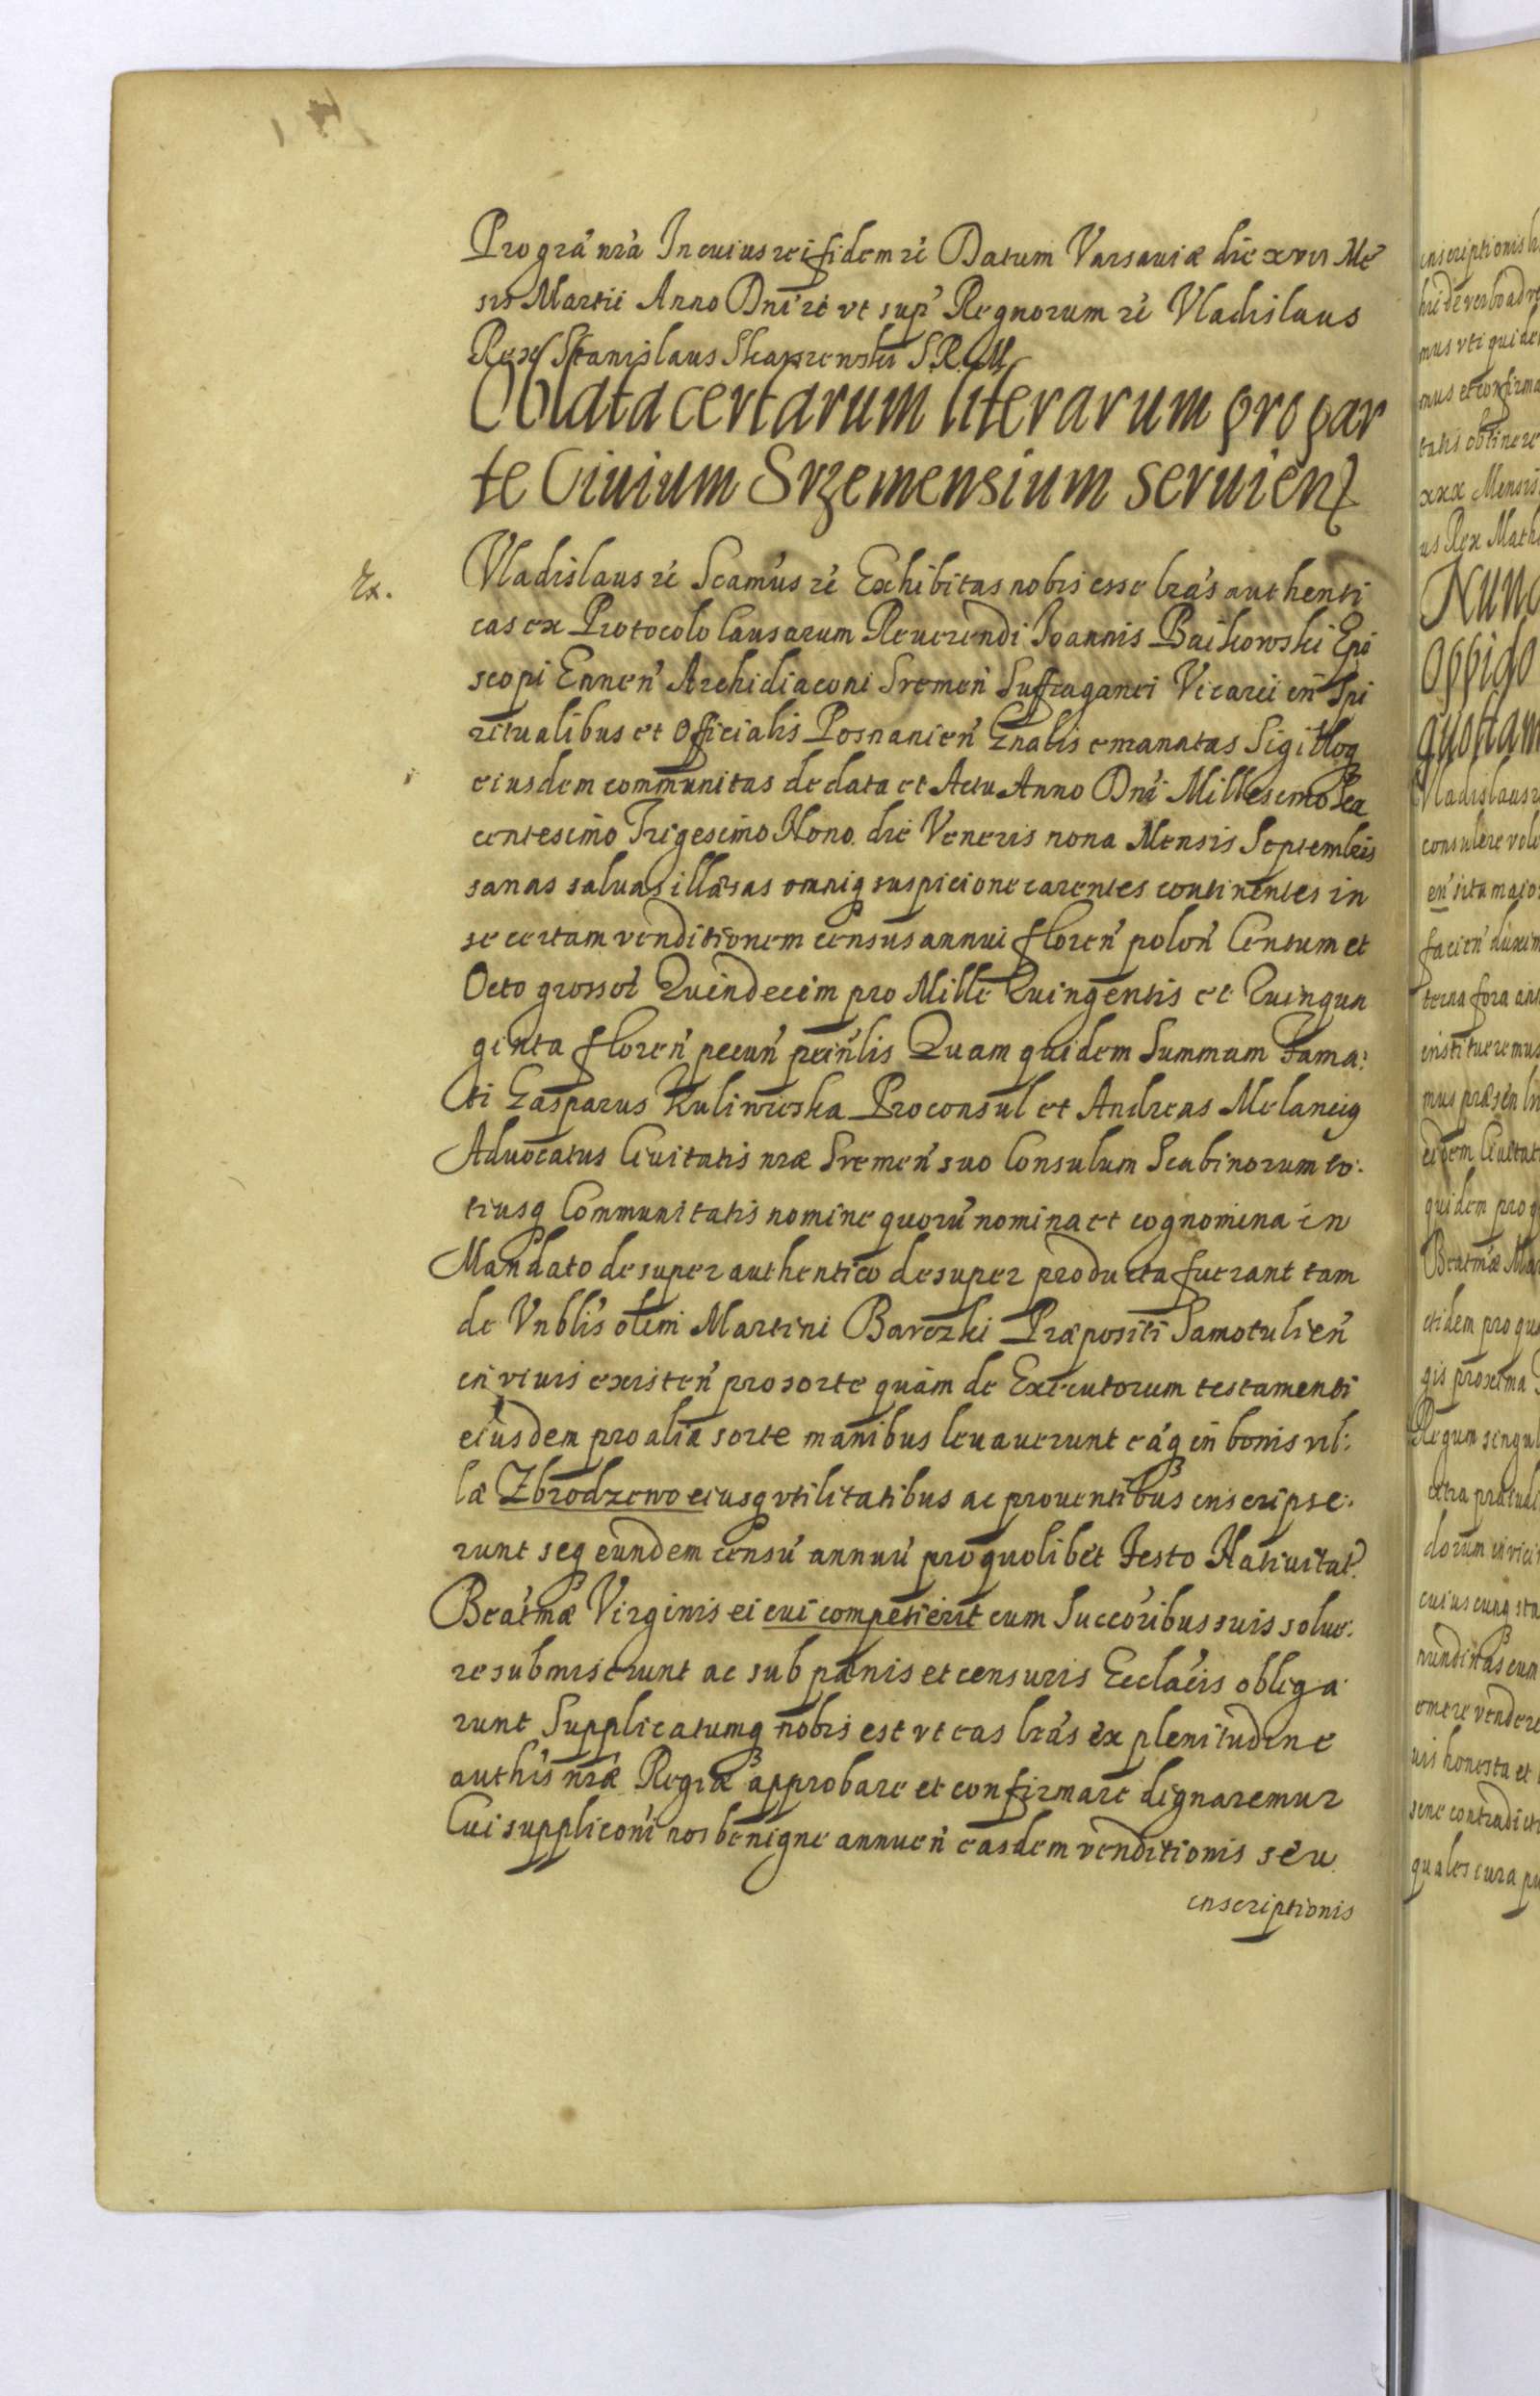 Pro gra̅ nr̅a In cuius rei fidem re̅ Datum Varsauiæ die xvii Me̅
sis Martii Anno Dni̅ re̅ vt sup̅ Regnorum re̅ Vladislaus
Rex Stanislaus Skarzenski S.R.M.
Oblata certarum literarum pro par
te Ciuium Srzemensium seruient
Rx. Vladislaus re̅ Scam̅us re̅ Exhibitas nobis esse lr̅as authenti
cas ex Protocolo Causarum Reuerendi Ioannis Baikowski Epi
scopi Ennen̅ Archidiaconi Sremen̅ Suffraganei Vicarii in Spi
ritualibus et Officialis Posnanien̅ Gnalis emanatas Sigilloq
eiusdem communitas de data et Actu Anno Dni̅ Millesimo Sex
centesimo Trigesimo Nono die Veneris nona Mensis Septembris
sanas saluas illæsas omniq suspicione carentes continentes in
se certam venditionem census annui floren̅ polon̅ Centum et
Octo grossor̅ Quindecim pro Mille Quingentis et Quinqua
ginta floren̅ pecun̅ pecu̅nlis Quam quidem Summam Fama:
ti Gasparus Kuliwieska Proconsul et Andreas Melancig
Aduocatus Ciuitatis nr̅æ Sremen̅ suo Consulum Scabinorum to:
tiusq Communitatis nomine quoru̅ nomina et cognomina in
Mandato desuper authentico desuper producta fuerant tam
de Vnblis̅ olim Martini Barczki Præpositi Samotulien̅
in viuis existen̅ pro sorte quam de Executorum testamenti
eiusdem pro alia sorte manibus leuauerunt ea̅q in bonis vil:
la Zbrodzewo eiusq vtilitatibus ac prouentibus inscripse:
runt seq eundem censu̅ annuu̅ pro quolibet Festo Natiuitat
Beatm̅æ Virginis ei cui competierit cum Succoribus suis solue:
re submiserunt ac sub pænis et censuris Eccla̅cis obliga
runt Supplicatumq nobis est vt eas lr̅as ex plenitudine
authis̅ nr̅æ Regiæ approbare et confirmare dignaremur
Cui supplicon̅i nos benigne annuen̅ easdem venditionis seu
inscriptionis